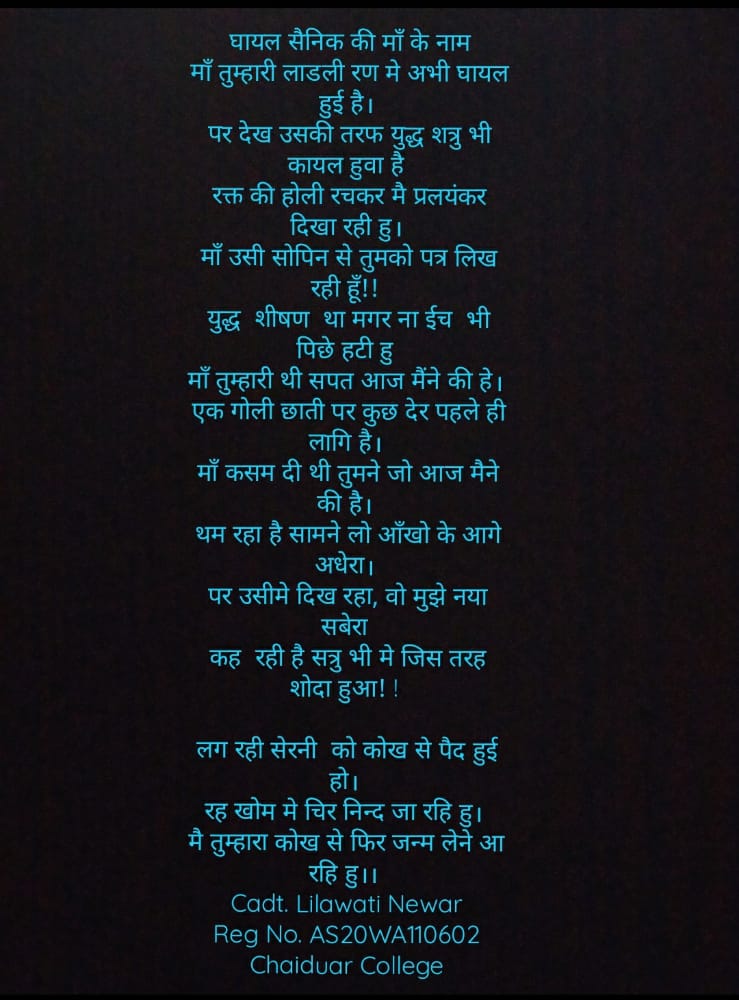 घायल सैनिक की माँ के नाम
माँ तुम्हारी लाडली रण मे अभी घायल
हुई है।
पर देख उसकी तरफ युद्ध शत्रु भी
कायल हुवा है
रक्त की होली रचकर मै प्रलयंकर
दिखा रही हु।
माँ उसी सोपिन से तुमको पत्र लिख
रही हूँ!!
युद्ध शीषण था मगर ना ईच भी
पिछे हटी हु
माँ तुम्हारी थी सपत आज मैंने की हे।
एक गोली छाती पर कुछ देर पहले ही
लागि है।
माँ कसम दी थी तुमने जो आज मैने
की है।
थम रहा है सामने लो आँखो के आगे
अधेरा।
पर उसीमे दिख रहा, वो मुझे नया
सबेरा
कह रही है सत्रु भी मे जिस तरह
शोदा हुआ! !
लग रही सेरनी को कोख से पैद हुई
हो।
रह खोम मे चिर निन्द जा रहि हु।
मै तुम्हारा कोख से फिर जन्म लेने आ
रहि हु।।
Cadt. Lilawati Newar
Reg No. AS20WA110602
Chaiduar College